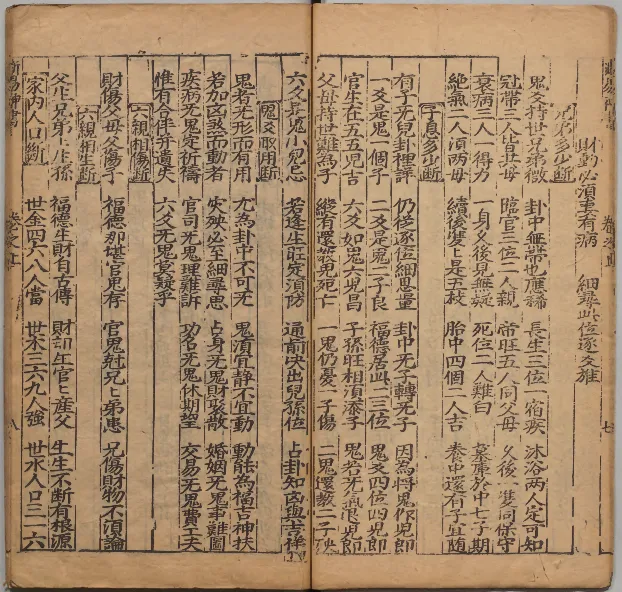 財動必須妻有病 細尋此位逐爻推
兄弟多少斷
鬼爻持世兄弟微 卦中無帶也應稀 長生三位一宿疾 沐浴兩人定可知
冠帶三人皆母 臨官三位二人親 帝旺五人同父母 久後一隻同保守
衰病三人一得力 一身久後見無疑 死位二人難白 墓庫於中七子期
絕氣二人須兩母 續後雙上是五枝 胎中四個二人吉 養中還有子宜隨
子息多少斷
有子无兒卦裡詳 仍從逐位細思量 卦中无子轉无子 因為將鬼作兒郎
一爻是鬼一個子 二爻是鬼二子良 福德居此二三位 鬼爻四位四兒郎
官生在五五兒吉 六爻如鬼六兒昌 子孫旺相須添子 鬼若无氣兒郎
父母持世難為子 縱有還教見死亡 一鬼仍憂一子傷 二鬼還教二子殃
六爻是鬼小兒忌 若逢生旺定須防 通前央出兒孫位 占卦知凶與吉祥
鬼爻取用斷
鬼者无形而有用 尤為卦中不可无 鬼須宜静不宜動 動能為福吉神扶
若加凶煞而動者 灾殃必至細尋思 占身无鬼財聚散 婚姻无鬼事難圖
疾病无鬼定祈禱 官司无鬼理難訴 功名无鬼休期望 交易无鬼費工夫
惟有占伴并遺失 六爻无鬼莫疑乎
六親相傷斷
財傷父母父傷子 福德那堪官鬼存 官鬼尅兄匕弟患 兄傷財物不須論
六親相生斷
父生兄弟匕生孫 福德生財自古傳 財却生官匕產父 生生不斷有根源
家內人口斷
世金四六八人當 世木三六九人強 世水人口三一六
卷之上 八